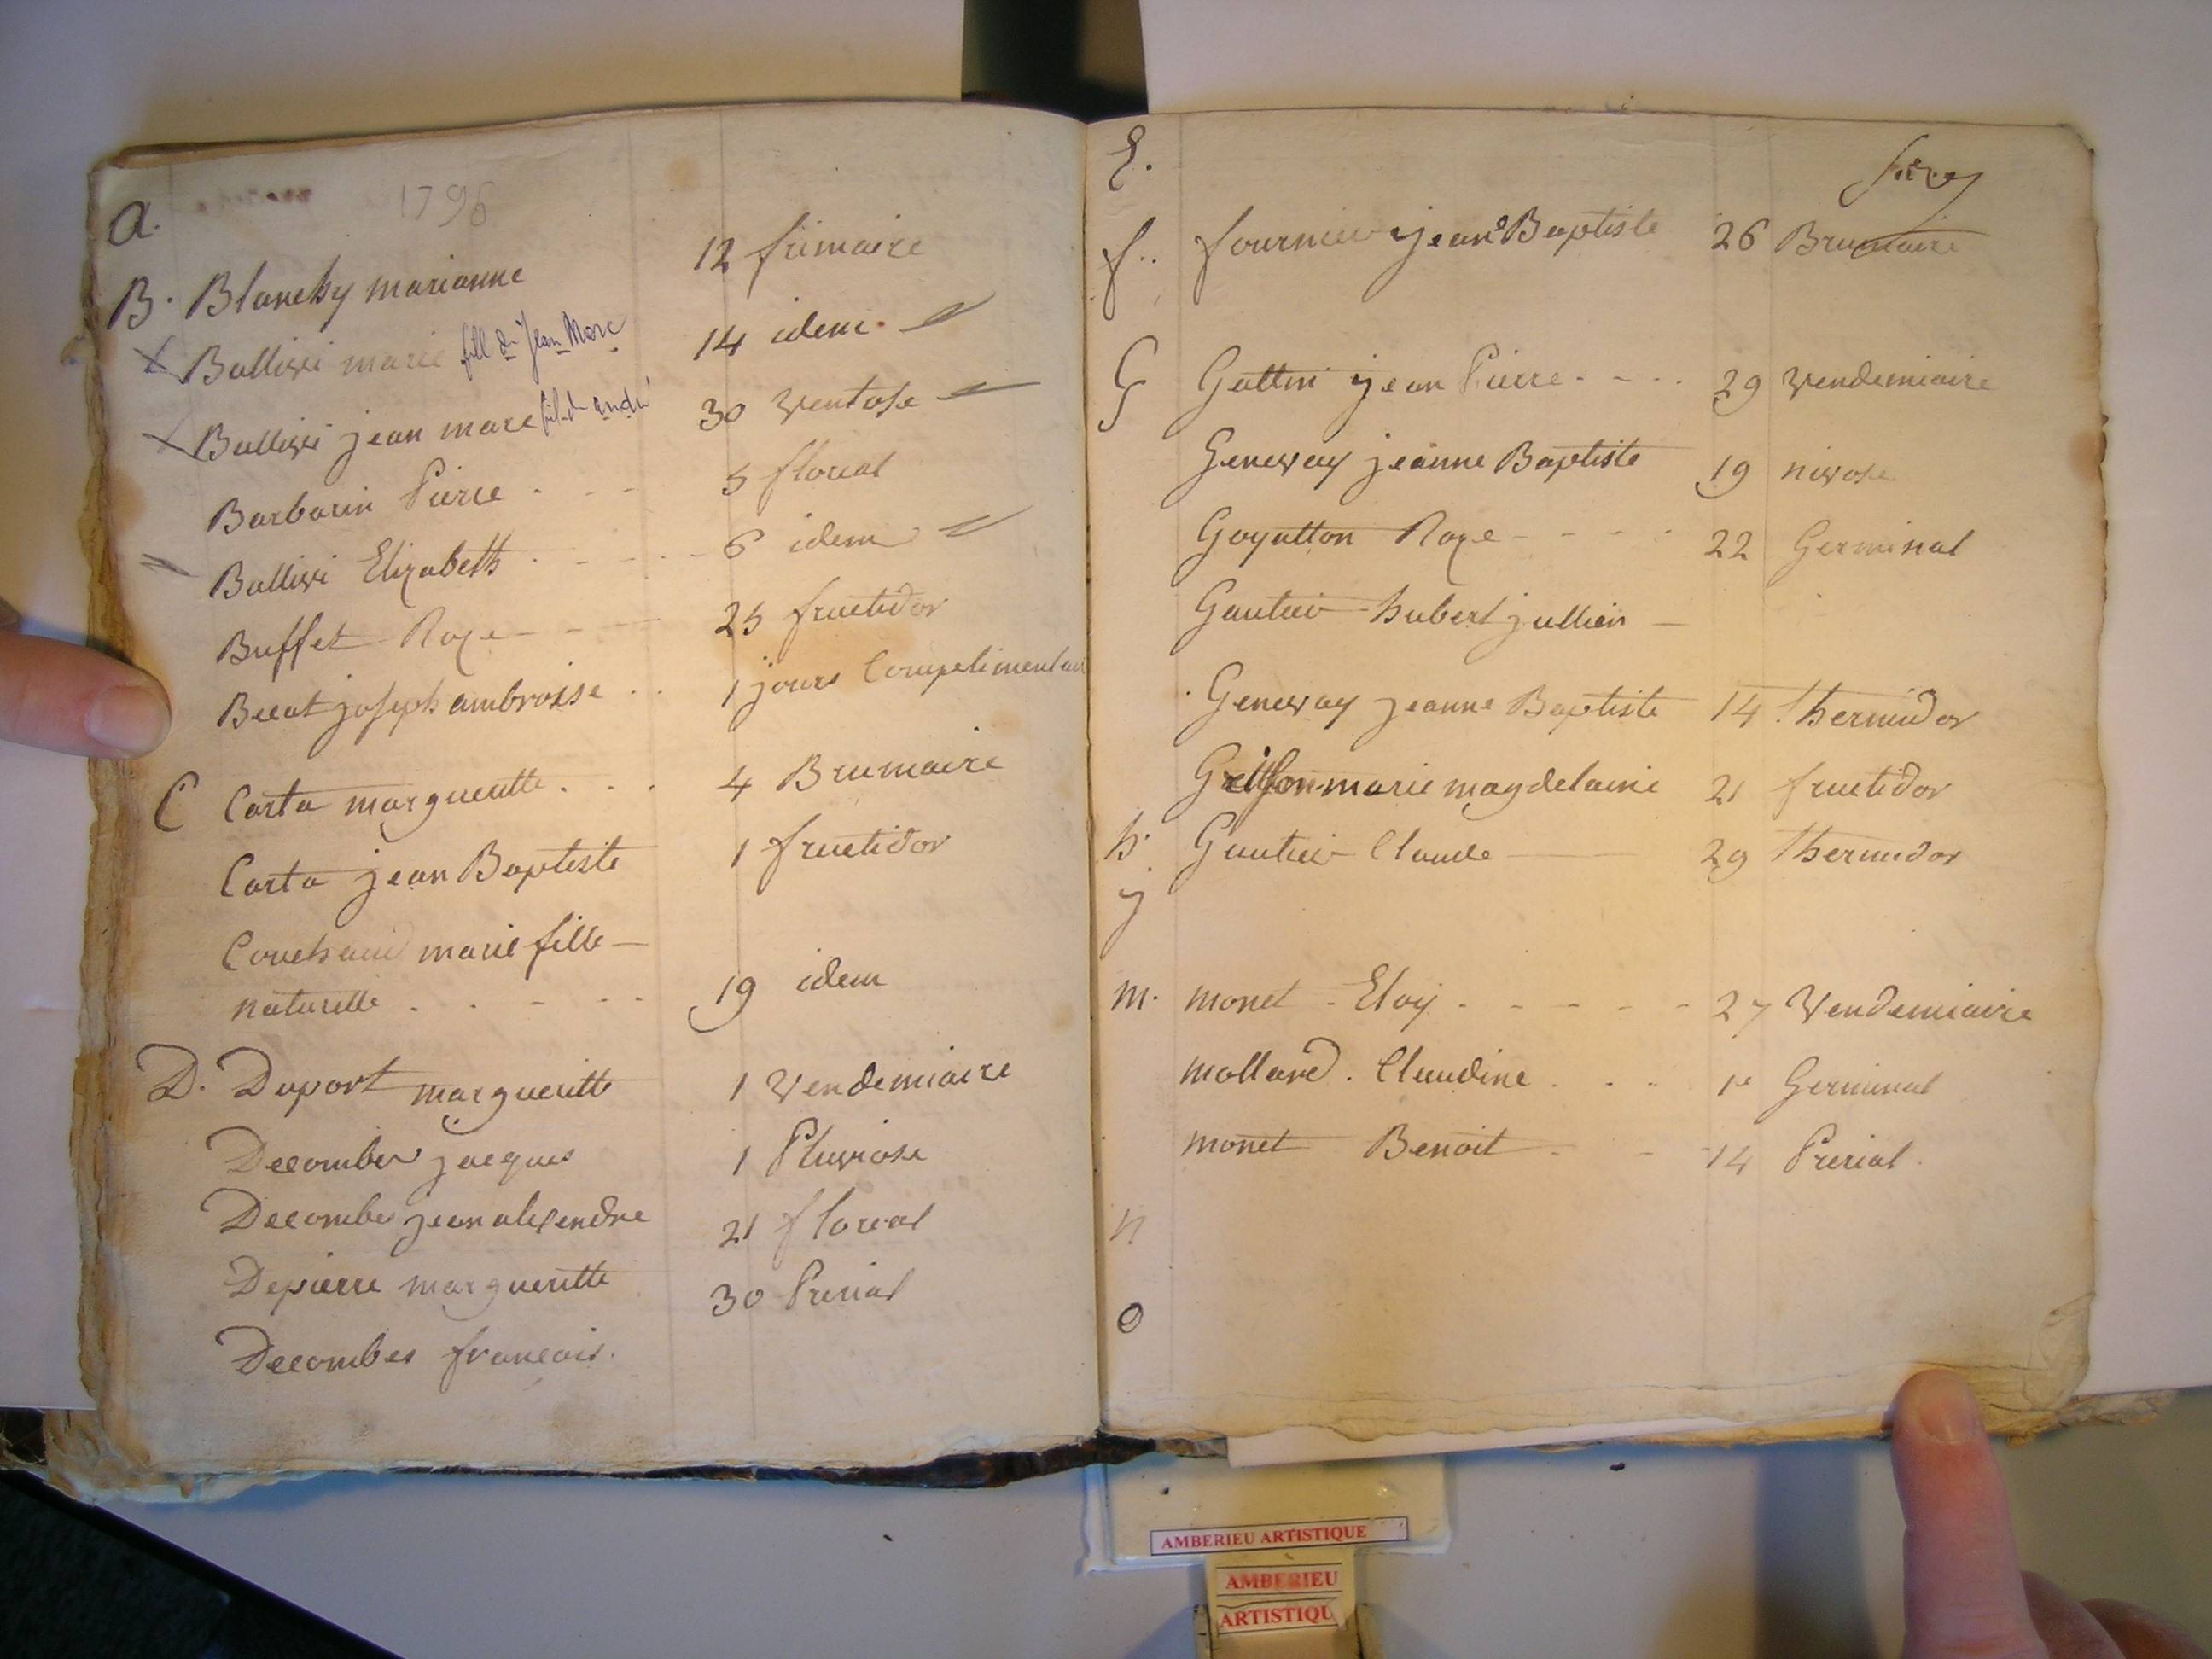 1796
a.
B. Blanchy marianne 12 frimaire
Ballivi marie fille de Jean Marc 14 idem.
Ballivi jean marc fils de andré 30 ventose
Barbarin Pierre 5 floreal
Ballivi Elizabeth 6 idem
Buffet Roze 25 fructidor
joseph ambroise 1 jours Complimentai
C Carta margueritte 4 Brumaire
Carta jean Baptiste 1 fructidor
marie fille
naturelle 19 idem
D. Duport margueritte 1 vendemiaire
Decombes jacques 1 Pluviose
Decombes jean alexendre 21 floreal
Depierre margueritte 30 Prerial
Decombes francois.
E.
f.. fournier jeane Baptiste 26 Brumaire
G Guttin jean Pierre 29 vendemiaire
Genevay jeanne Baptiste 19 nivose
Goyatton Roze 22 Germinal
Gautier hubert jullien
Genevay jeanne Baptiste 14 thermidor
marie magdelaine 21 fructidor
h. Gautier Claude 29 thermidor
j
m. monet Eloy 27 Vendemiaire
mollard. Claudine 1er Germinal
monet Benoit 14 Prerial.
n
O
AMBERIEU ARTISTIQUE
AMBERIEU
ARTISTIQU